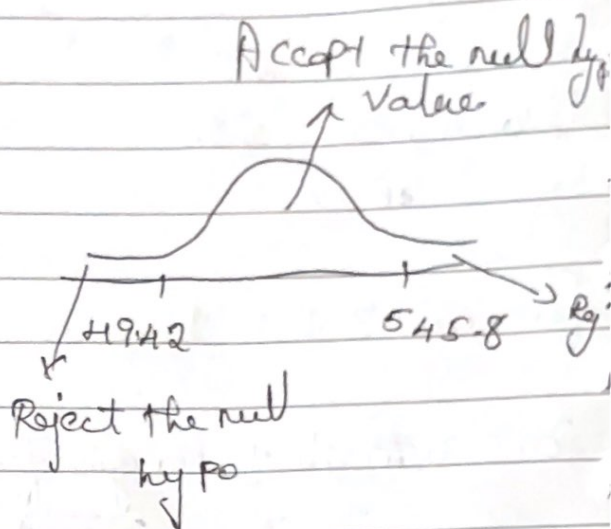 Accept the null hy
value
494.2
545.8
Rej
Reject the null
hypo